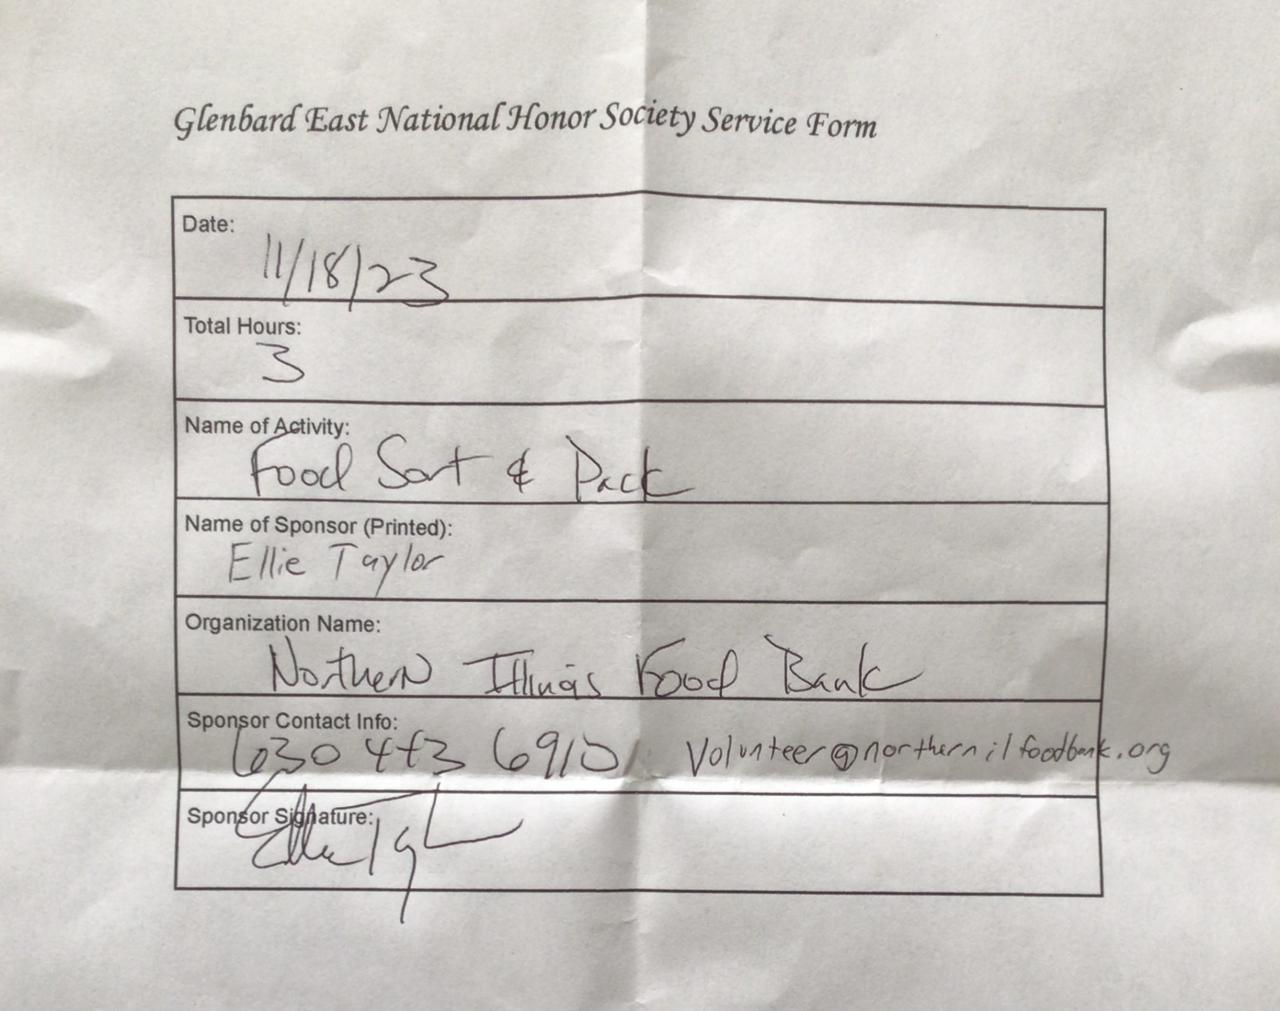 Glenbard East National Honor Society Service Form
Date:
11/18/23
Total Hours:
3
Name of Activity:
Food Sort & Pack
Name of Sponsor (Printed):
Ellie Taylor
Organization Name:
Northern Illinois Food Bank
Sponsor Contact Info:
630 443 6910 / volunteer@northernilfoodbank.org
Sponsor Signature:
Ellie Taylor